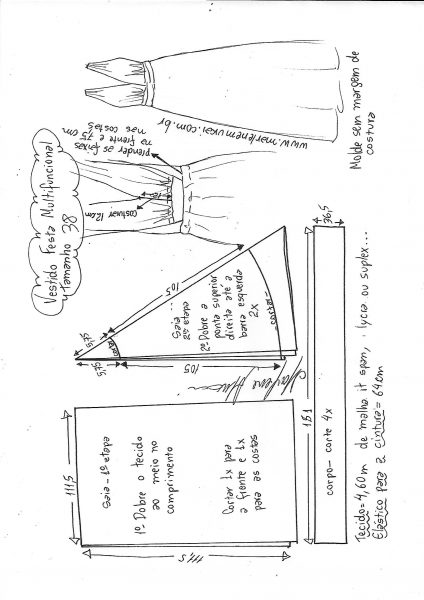 Vestido Festa Multifuncional
tamanho 38
prender as faixas
na frente e
nas costas
75 cm
costurar 12 cm
www.marlenemukai.com.br
Molde sem margem de
costura
Saia - 1ª etapa
1º Dobre o tecido
ao meio no
comprimento
Cortar 1x para
a frente e 1x
para as costas
111,5
111,5
Saia...
2ª etapa
2º Dobre a
ponta superior
direita até a
barra esquerda
2x
-cortar-
105
105
Marlene Mukai
36,5
151
corpo - corte 4x
Tecido = 4,60m de malha it span, lycra ou suplex...
Elástico para a cintura = 64cm